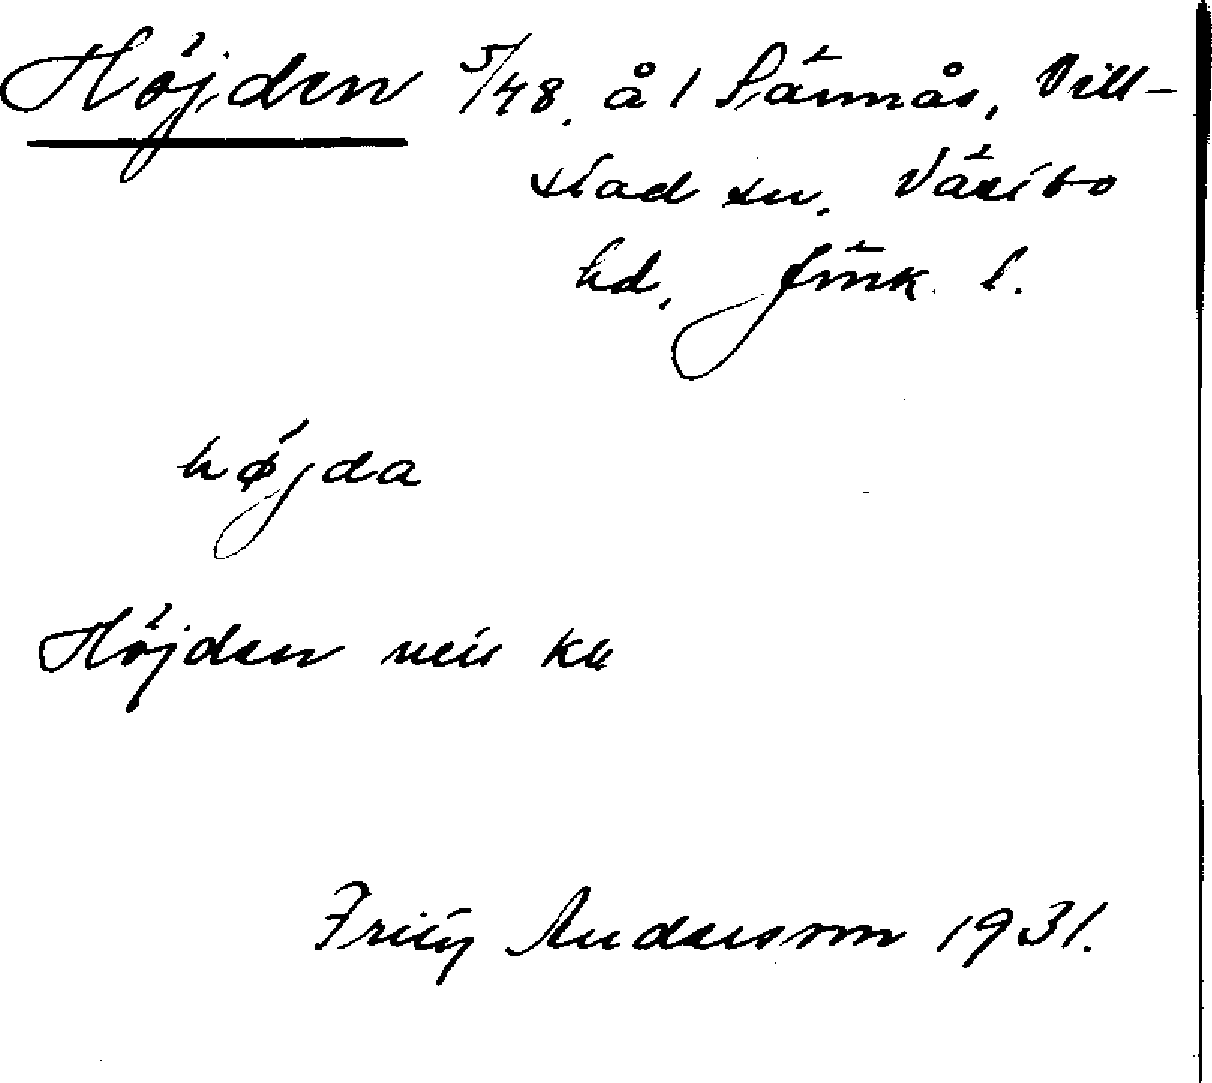 Höjden 5/48. å 1 Sännås, Vill-
stad sn. Västbo
hd, Jönk. l.
højda
Höjden
Fritz Andersson 1931.